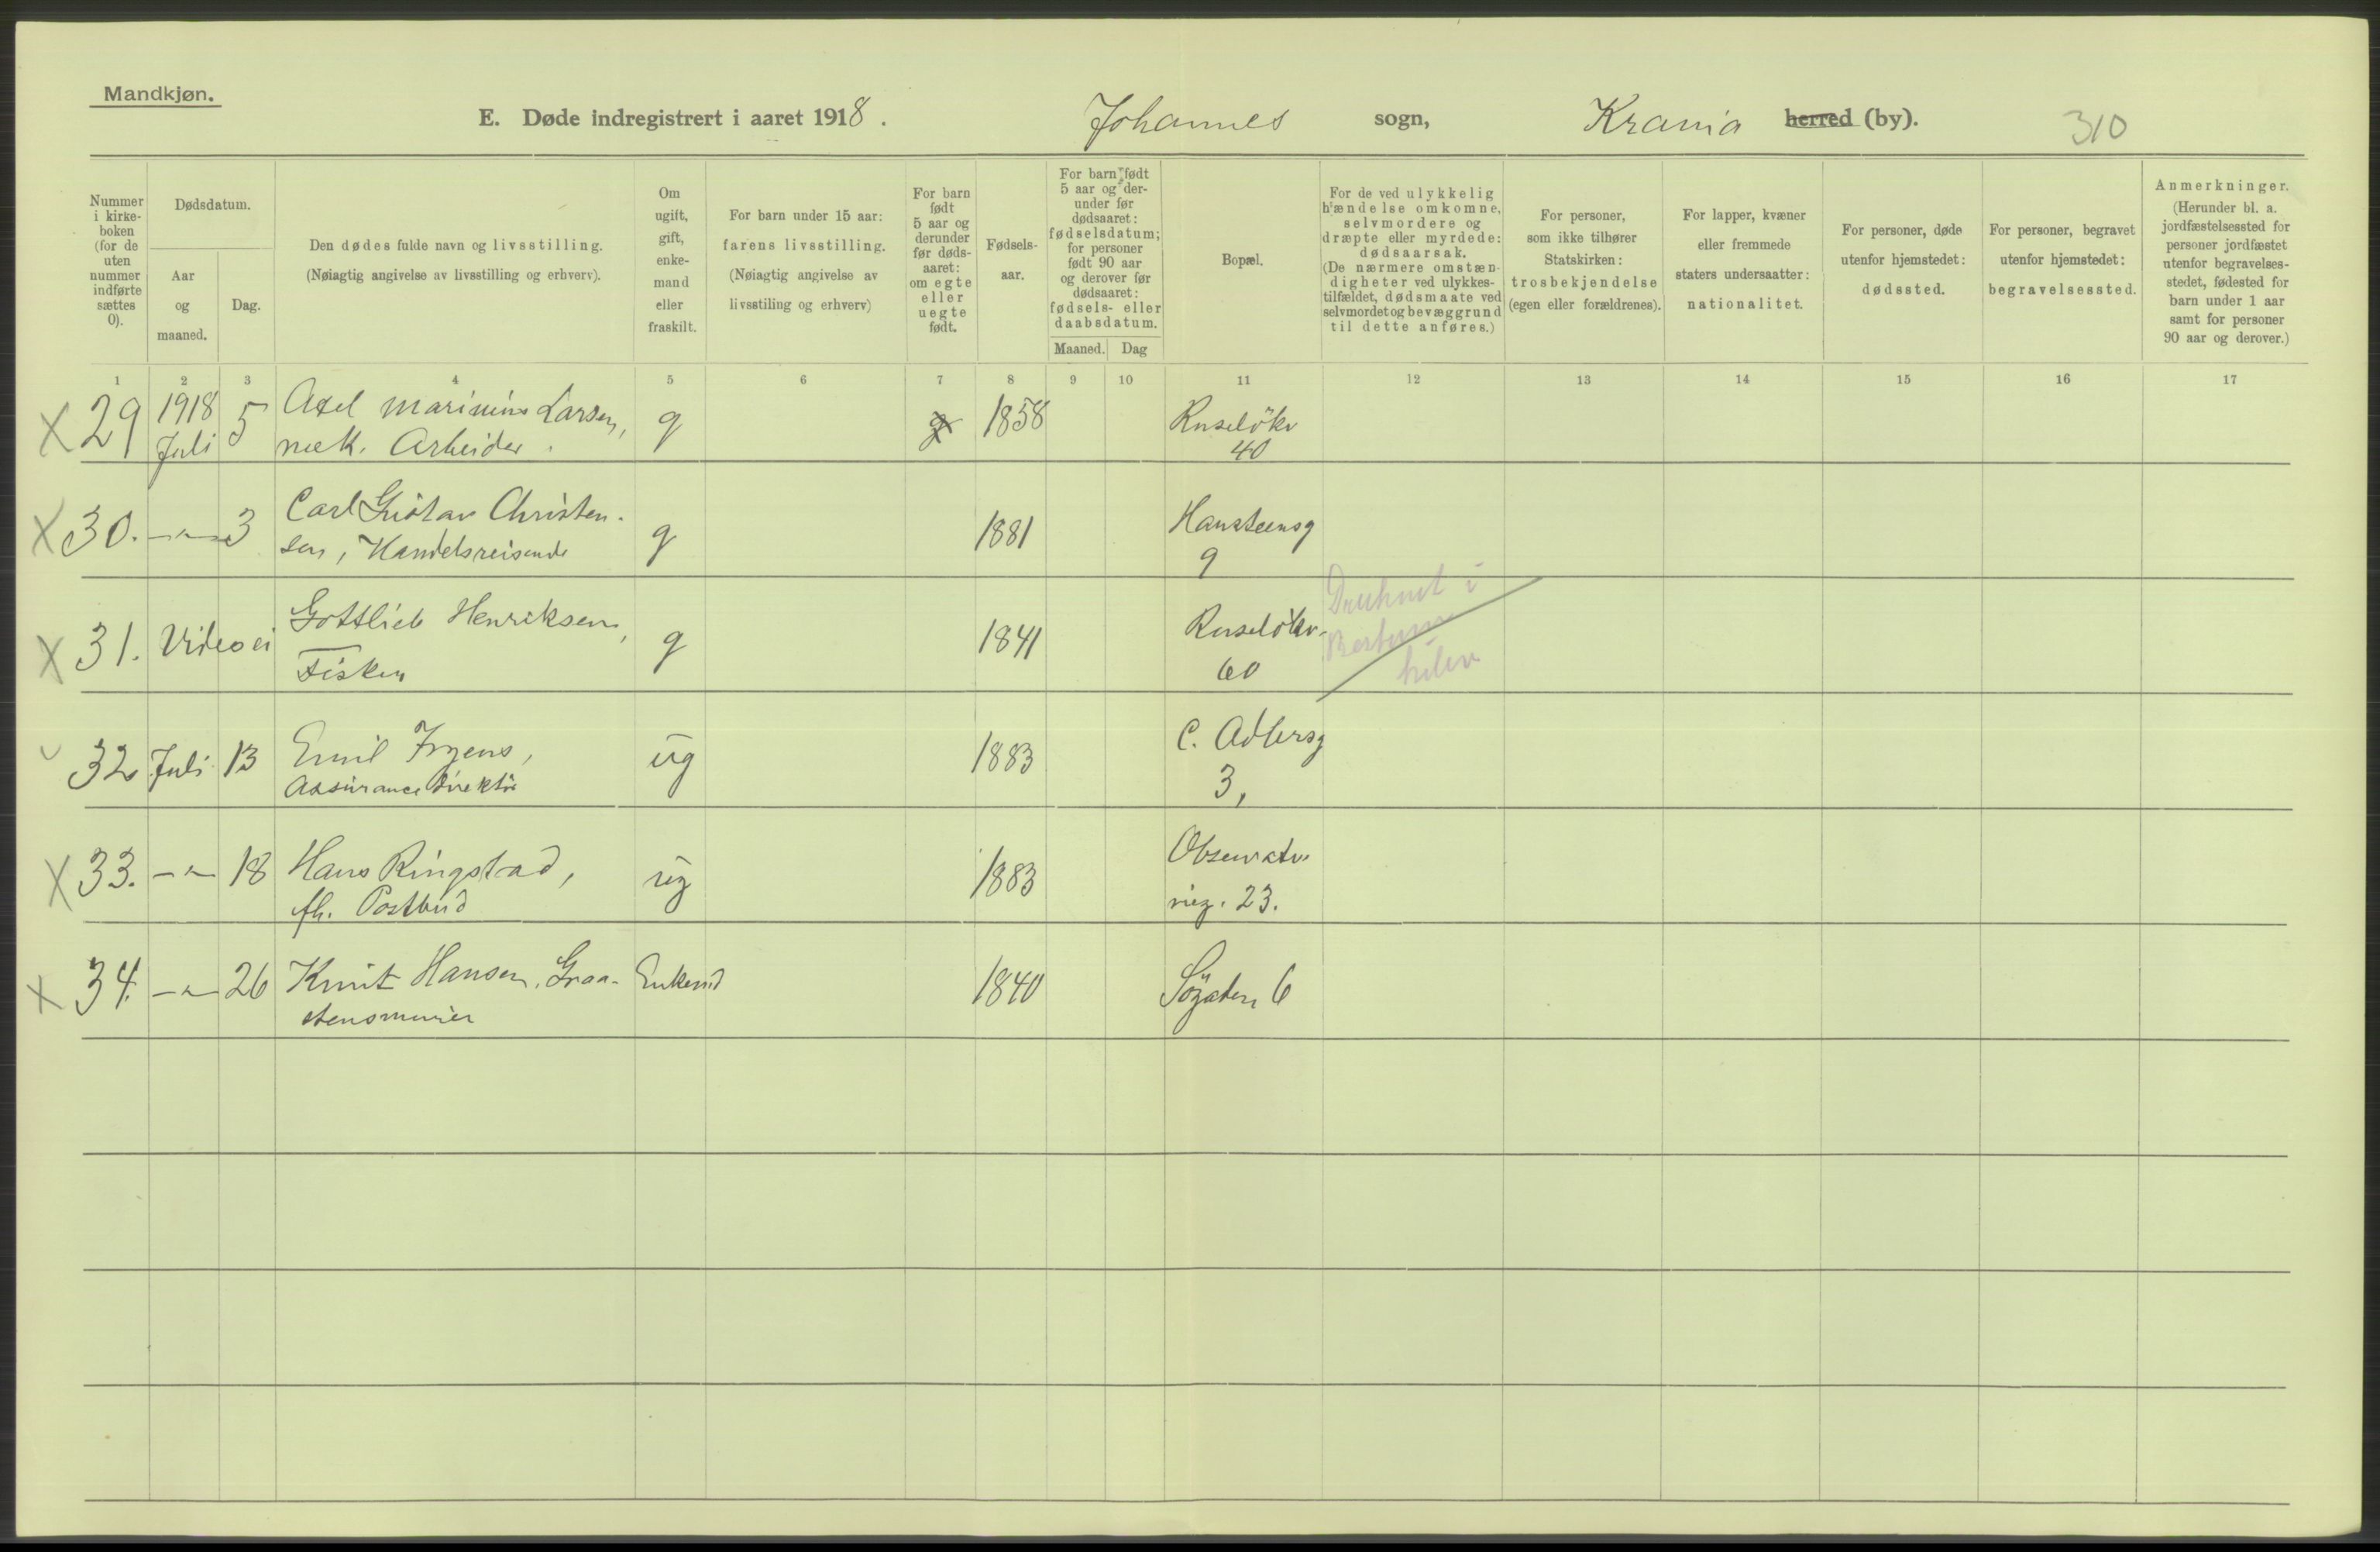 Mandkjøn.
E. Døde indregistrert i aaret 1918. Johannes sogn, Krania herred (by). 310
Nummer i kirke-boken (for de uten nummer indførte sættes 0).
Dødsdatum.
Aar og maaned.
Dag.
Den dødes fulde navn og livsstilling.
(Nøiagtig angivelse av livsstilling og erhverv).
Om ugift, gift, enke-mand eller fraskilt.
For barn under 15 aar:
farens livsstilling.
(Nøiagtig angivelse av
livsstiling og erhverv)
For barn født 5 aar og derunder før døds-aaret: om egte eller uegte født.
Fødsels-aar.
For barn født 5 aar og der-under før dødsaaret: fødselsdatum; for personer født 90 aar og derover før dødsaaret: fødsels- eller daabsdatum.
Maaned. Dag
Bopæl.
For de ved ulykkelig hændelse omkomne, selvmordere og dræpte eller myrdede: dødsaarsak. (De nærmere omstæn-digheter ved ulykkes-tilfældet, dødsmaate ved selvmordet og bevæggrund til dette anføres.)
For personer, som ikke tilhører Statskirken: trosbekjendelse (egen eller forældrenes).
For lapper, kvæner eller fremmede staters undersaatter: nationalitet.
For personer, døde utenfor hjemstedet: dødssted.
For personer, begravet utenfor hjemstedet: begravelsessted.
Anmerkninger. (Herunder bl. a. jordfæstelsessted for personer jordfæstet utenfor begravelses-stedet, fødested for barn under 1 aar samt for personer 90 aar og derover.)
1 2 3 4 5 6 7 8 9 10 11 12 13 14 15 16 17
X 29 1918 Juli 5 Axel Marinius Larsen, g g 1858 Ruseløkv
mek. Arbeider. 40
X 30. -"- 3 Carl Gustav Christen- g 1881 Hansteensg
sen, Handelsreisende 9
X 31. Vides ei Gottlieb Henriksen, g 1841 Ruseløkv. Druknet i
Fisker 60
32 Juli 13 Emil Irgens, ug 1883 C. Adlersg
Assurance Direktør 3,
X 33. -"- 18 Hans Ringstad, ug 1883 Observato
fh. Postbud rieg. 23.
X 34. -"- 26 Knut Hansen, Graa- Enkemd 1840 Søgaten 6
stensmurer